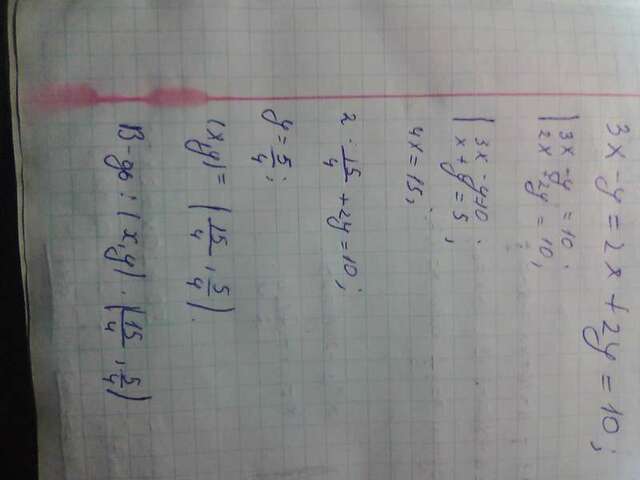 3x - y = 2x + 2y = 10;
{ 3x - y = 10;
2x + 2y = 10;
{ 3x - y = 10;
x + y = 5;
4x = 15;
2 · 15/4 + 2y = 10;
y = 5/4;
(x, y) = (15/4, 5/4).
В-дь: (x, y) · (15/4, 5/4)